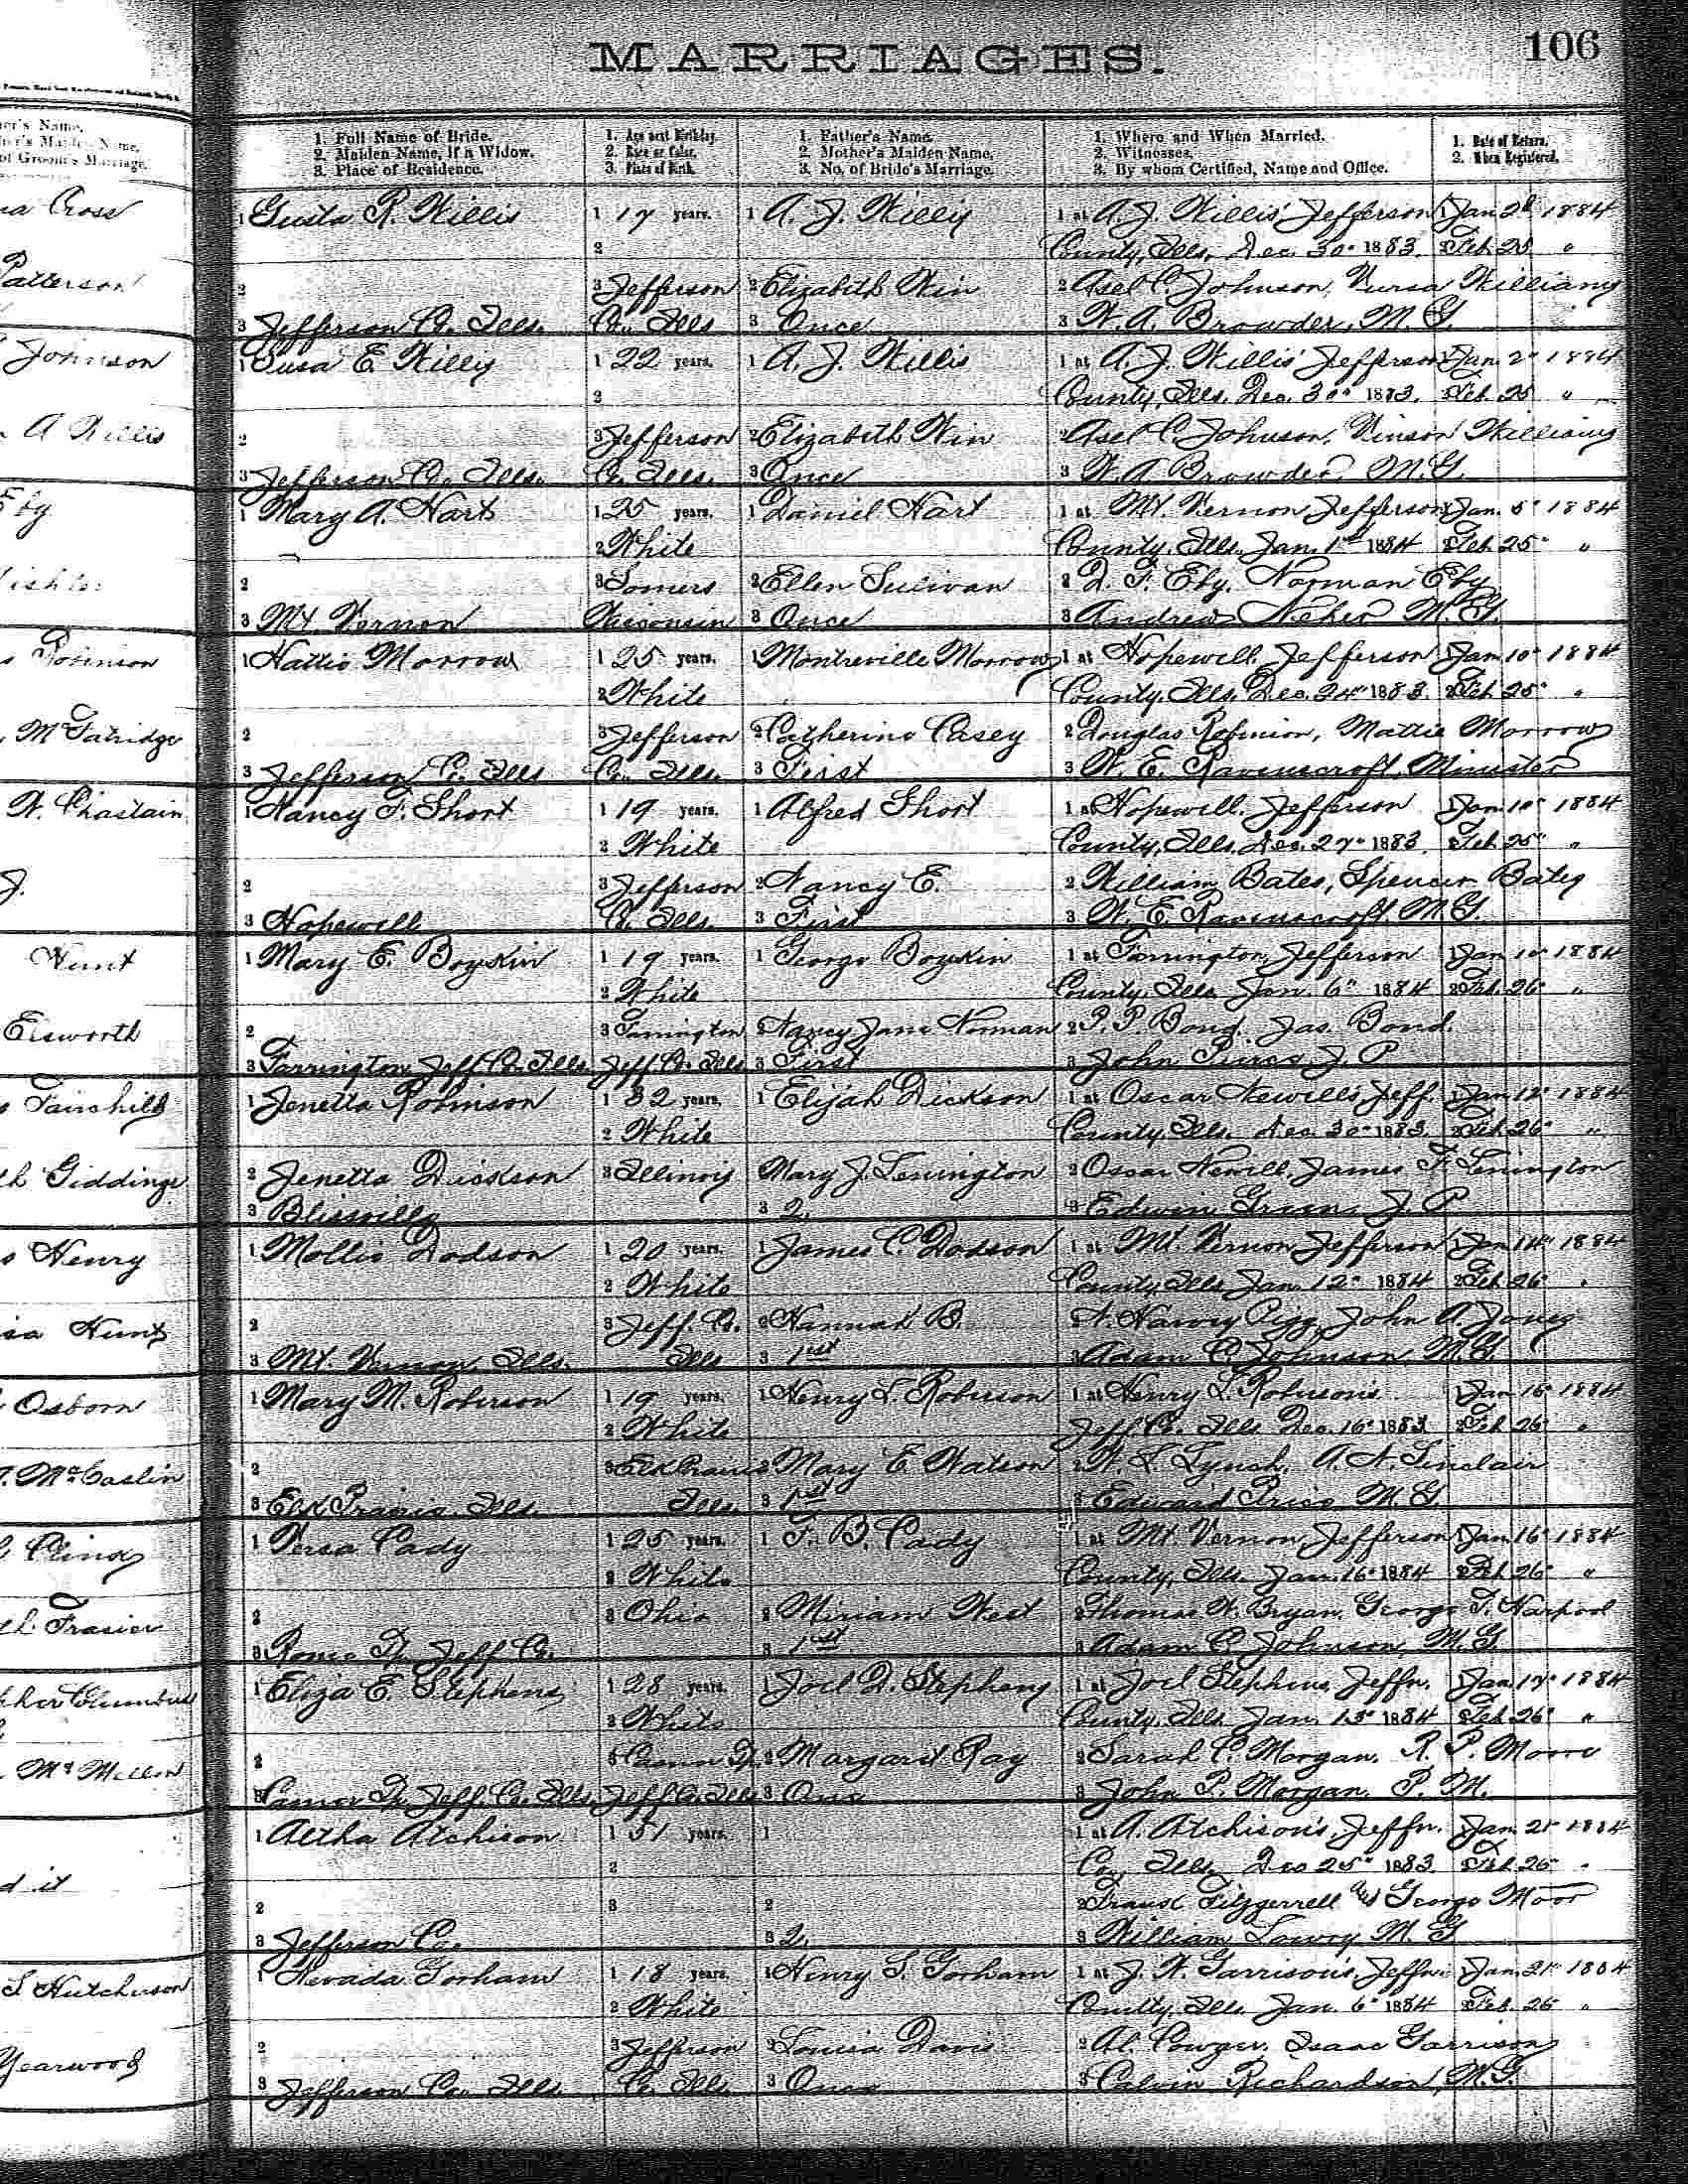 MARRIAGES.
106
1. Full Name of Bride. 1. Age next Birthday. 1. Father's Name. 1. Where and When Married. 1. Date of Return.
2. Maiden Name, If a Widow. 2. Race or Color. 2. Mother's Maiden Name. 2. Witnesses. 2. When Registered.
3. Place of Residence. 3. Place of Birth. 3. No. of Bride's Marriage. 3. By whom Certified, Name and Office.
Cross 1 Gusta R. Willis 1 17 years. 1 A. J. Willis 1 at A. J. Willis' Jefferson 1 Jan 2d 1884
2 County, Ills. Dec. 30" 1883. 2 Feb. 25 "
Patterson 2 3 Jefferson 2 Elizabeth Win 2 Asel C. Johnson, Williams
3 Jefferson Co. Ills. Co. Ills 3 Once 3 W. A. Browder, M. G.
Johnson 1 E. Willis 1 22 years. 1 A. J. Willis 1 at A. J. Willis' Jefferson 1 Jan. 2" 1884
2 County, Ills. Dec. 30" 1883. 2 Feb. 25 "
A Willis 2 3 Jefferson 2 Elizabeth Win 2 Asel C. Johnson, Vinson Williams
3 Jefferson Co. Ills. Co. Ills. 3 Once 3 W. A. Browder, M. G.
Eby 1 Mary A. Hart 1 25 years. 1 Daniel Hart 1 at Mt. Vernon Jefferson 1 Jan. 5" 1884
2 White County, Ills. Jan. 1st 1884 2 Feb. 25" "
2 3 Somers 2 Ellen Sulivan 2 D. F. Eby, Norman Eby
3 Mt. Vernon Wisconsin 3 Once 3 Andrew Neher M. G.
Robinson 1 Hattie Morrow 1 25 years. 1 Montreville Morrow 1 at Hopewell, Jefferson 1 Jan. 10" 1884
2 White County, Ills. Dec. 24" 1883. 2 Feb. 25" "
McTatridge 2 3 Jefferson 2 Catherine Casey 2 Douglas Robinson, Mattie Morrow
3 Jefferson Co. Ills Co. Ills. 3 First 3 W. E. Ravenscroft, Minister
W. Chastain 1 Nancy F. Short 1 19 years. 1 Alfred Short 1 at Hopewell, Jefferson 1 Jan. 10" 1884
2 White County, Ills. Dec. 27" 1883. 2 Feb. 25" "
J. 2 3 Jefferson 2 Nancy E. 2 William Bates, Spencer Bates
3 Hopewell Co. Ills. 3 First 3 W. E. Ravenscroft, M. G.
Hunt 1 Mary E. Boykin 1 19 years. 1 George Boykin 1 at Farrington, Jefferson 1 Jan 10" 1884
2 White County, Ills. Jan. 6" 1884 2 Feb. 26" "
Elsworth 2 3 Farrington 2 Nancy Jane Norman 2 P. P. Bond, Jas. Bond.
3 Farrington, Jeff Co. Ills. Jeff Co. Ills 3 First 3 John Pierce J. P.
Fairchild 1 Jenetta Robinson 1 32 years. 1 Elijah Dickson 1 at Oscar Newell's Jeff. 1 Jan. 12" 1884
2 White County, Ills. Dec. 30" 1883. 2 Feb. 26" "
Giddings 2 Jenetta Dickson 3 Illinois Mary J. Lenington 2 Oscar Newell, James F. Lenington
3 Blissville 3 2. 3 Edwin Green, J. P.
Henry 1 Mollie Dodson 1 20 years. 1 James C. Dodson 1 at Mt. Vernon, Jefferson 1 Jan 14" 1884
2 White County, Ills. Jan. 12" 1884 2 Feb. 26" "
Hunt 2 3 Jeff. Co. 2 Hannah B. 2 W. Harvey Pigg, John A. Jones
3 Mt. Vernon, Ills. Ills 3 1st 3 Adam C. Johnson, M. G.
Osborn 1 Mary M. Roberson 1 19 years. 1 Henry L. Roberson 1 at Henry L. Roberson's 1 Jan 16" 1884
2 White Jeff Co. Ills Dec. 16" 1883 2 Feb. 26" "
McCaslin 2 3 Elk Prairie 2 Mary E. Watson 2 W. L. Lynch, A. N. Sinclair
3 Elk Prairie, Ills. Ills. 3 1st 3 Edward Price M. G.
1 Versa Cady 1 25 years. 1 F. B. Cady 1 at Mt. Vernon, Jefferson 1 Jan. 16" 1884
2 White County, Ills. Jan. 16" 1884 2 Feb. 26" "
Frasier 2 3 Ohio 2 Miriam West 2 Thomas W. Bryan, George T. Harpool
3 Rome Tp. Jeff Co. 3 1st 3 Adam C. Johnson, M. G.
1 Eliza E. Stephens 1 28 years. 1 Joel D. Stephens 1 at Joel Stephens, Jeffn. 1 Jan. 17" 1884
2 White County, Ills. Jan. 13" 1884 2 Feb. 26" "
McMillon 2 3 Casner Tp. 2 Margaret Ray 2 Sarah C. Morgan, R. P. Moore
3 Casner Tp. Jeff. Co. Ills. Jeff Co. Ills 3 One 3 John P. Morgan, P. M.
1 Altha Atchison 1 51 years. 1 1 at A. Atchison's, Jeffn. Jan. 21" 1884
2 Co., Ills. Dec 25" 1883. 2 Feb. 26" "
2 3 2 2 Fitzgerrell George Moor
3 Jefferson Co. 3 2. 3 William Lowry M. G.
S Hutcherson 1 Nevada Gorham 1 18 years. 1 Henry S. Gorham 1 at J. W. Garrison's, Jeffn. Jan. 21" 1884
2 White County, Ills. Jan. 6" 1884 2 Feb. 26 "
Yearwood 2 3 Jefferson 2 Louisa Davis 2 Al. Cowger, Isaac Garrison
3 Jefferson Co. Ills Co. Ills. 3 Once 3 Calvin Richardson, M. G.